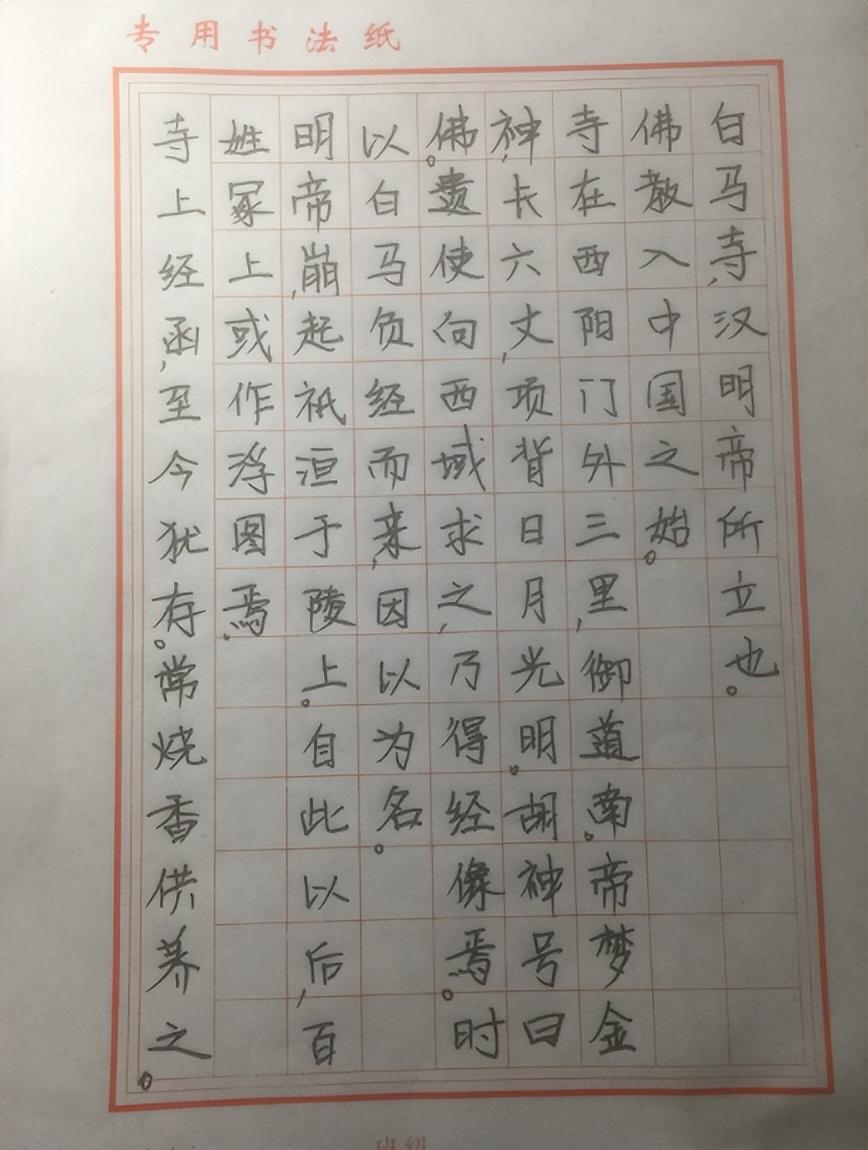 专用书法纸
白马寺,汉明帝所立也。
佛教入中国之始。
寺在西阳门外三里,御道南。帝梦金
神,长六丈,项背日月光明。胡神号曰
佛。遣使向西域求之,乃得经像焉。时
以白马负经而来,因以为名。
明帝崩,起祇洹于陵上。自此以后,百
姓冢上或作浮图焉。
寺上经函,至今犹存。常烧香供养之。
班级